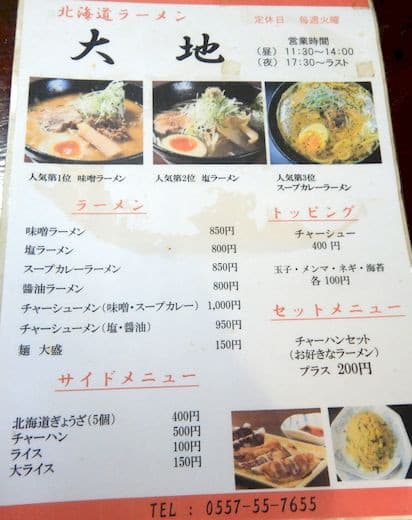 北海道ラーメン
大地
定休日 毎週火曜
営業時間
(昼) 11:30~14:00
(夜) 17:30~ラスト
人気第1位 味噌ラーメン
人気第2位 塩ラーメン
人気第3位
スープカレーラーメン
ラーメン
味噌ラーメン 850円
塩ラーメン 800円
スープカレーラーメン 850円
醬油ラーメン 800円
チャーシューメン(味噌・スープカレー) 1,000円
チャーシューメン(塩・醬油) 950円
麺 大盛 150円
トッピング
チャーシュー
400円
玉子・メンマ・ネギ・海苔
各100円
セットメニュー
チャーハンセット
(お好きなラーメン)
プラス 200円
サイドメニュー
北海道ぎょうざ(5個) 400円
チャーハン 500円
ライス 100円
大ライス 150円
TEL : 0557-55-7655